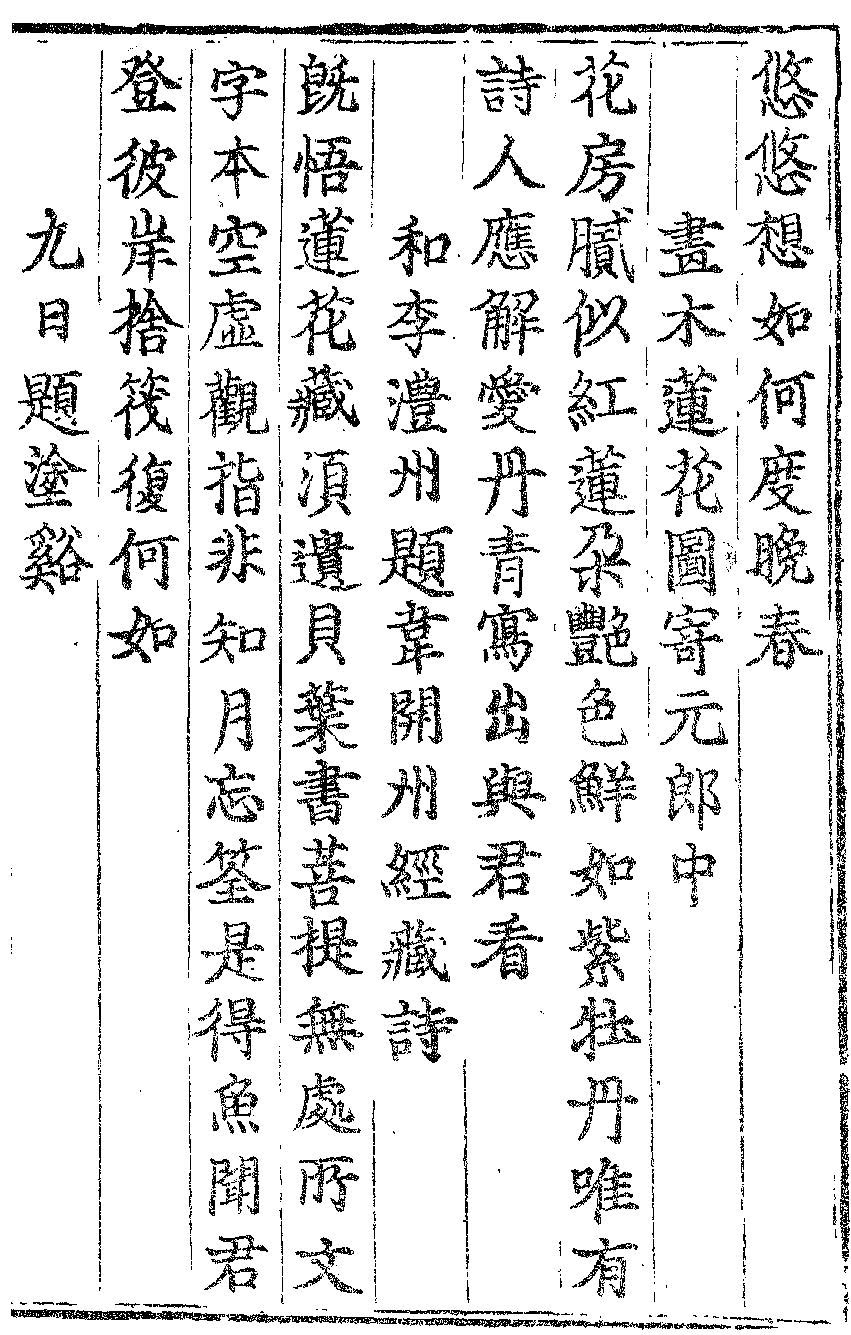 悠悠想如何度晚春
畫木蓮花圖寄元郎中
花房膩似紅蓮朶艷色鮮如紫牡丹唯有
詩人應解愛丹青寫出與君看
和李澧州題韋開州經藏詩
旣悟蓮花藏須遺貝葉書菩提無處所文
字本空虛觀指非知月忘筌是得魚聞君
登彼岸捨筏復何如
九日題塗谿